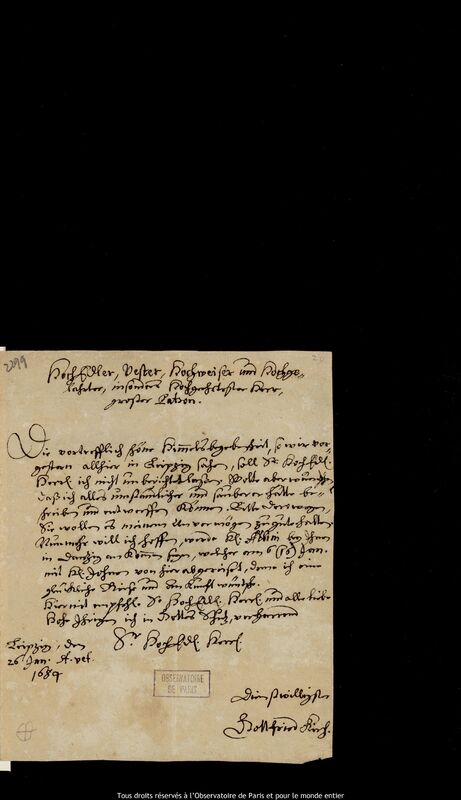 2299
HochEdler, Vester, Hochweiser und Hochge-
lahrter, insonders Hochgeehrtester Herr,
großer Patron.
Die vortrefflich schöne Himmelsbegebenheit, so wir vor-
gestern allhier in Leipzig sahen, soll Sr. HochEdl.
Herrl. ich nicht unberichtet lassen. Wolte aber wünschen
daß ich alles umständlicher und sauberer hätte be-
schreiben und entwerffen können. Bitte derowegen
Sie wollen es meinem Unvermögen zu gute halten.
Nunmehr will ich hoffen, werde bey Ihnen
in Dantzig ankommen seyn, welcher am 6 (16) Jan.
mit von hier abgereiset, deme ich eine
glückliche Reise und Ankunft wünsche.
Hiermit empfehle Sr. HochEdl. Herrl. und alle liebe
Hohe Ihrigen ich in Gottes Schutz verharrend
Sr. HochEdl. Herrl.
Leipzig, den
26 Jan. St. vet.
1684
OBSERVATOIRE
DE PARIS
Dienstwilligster
Gottfried Kirch.
Tous droits réservés à l'Observatoire de Paris et pour le monde entier